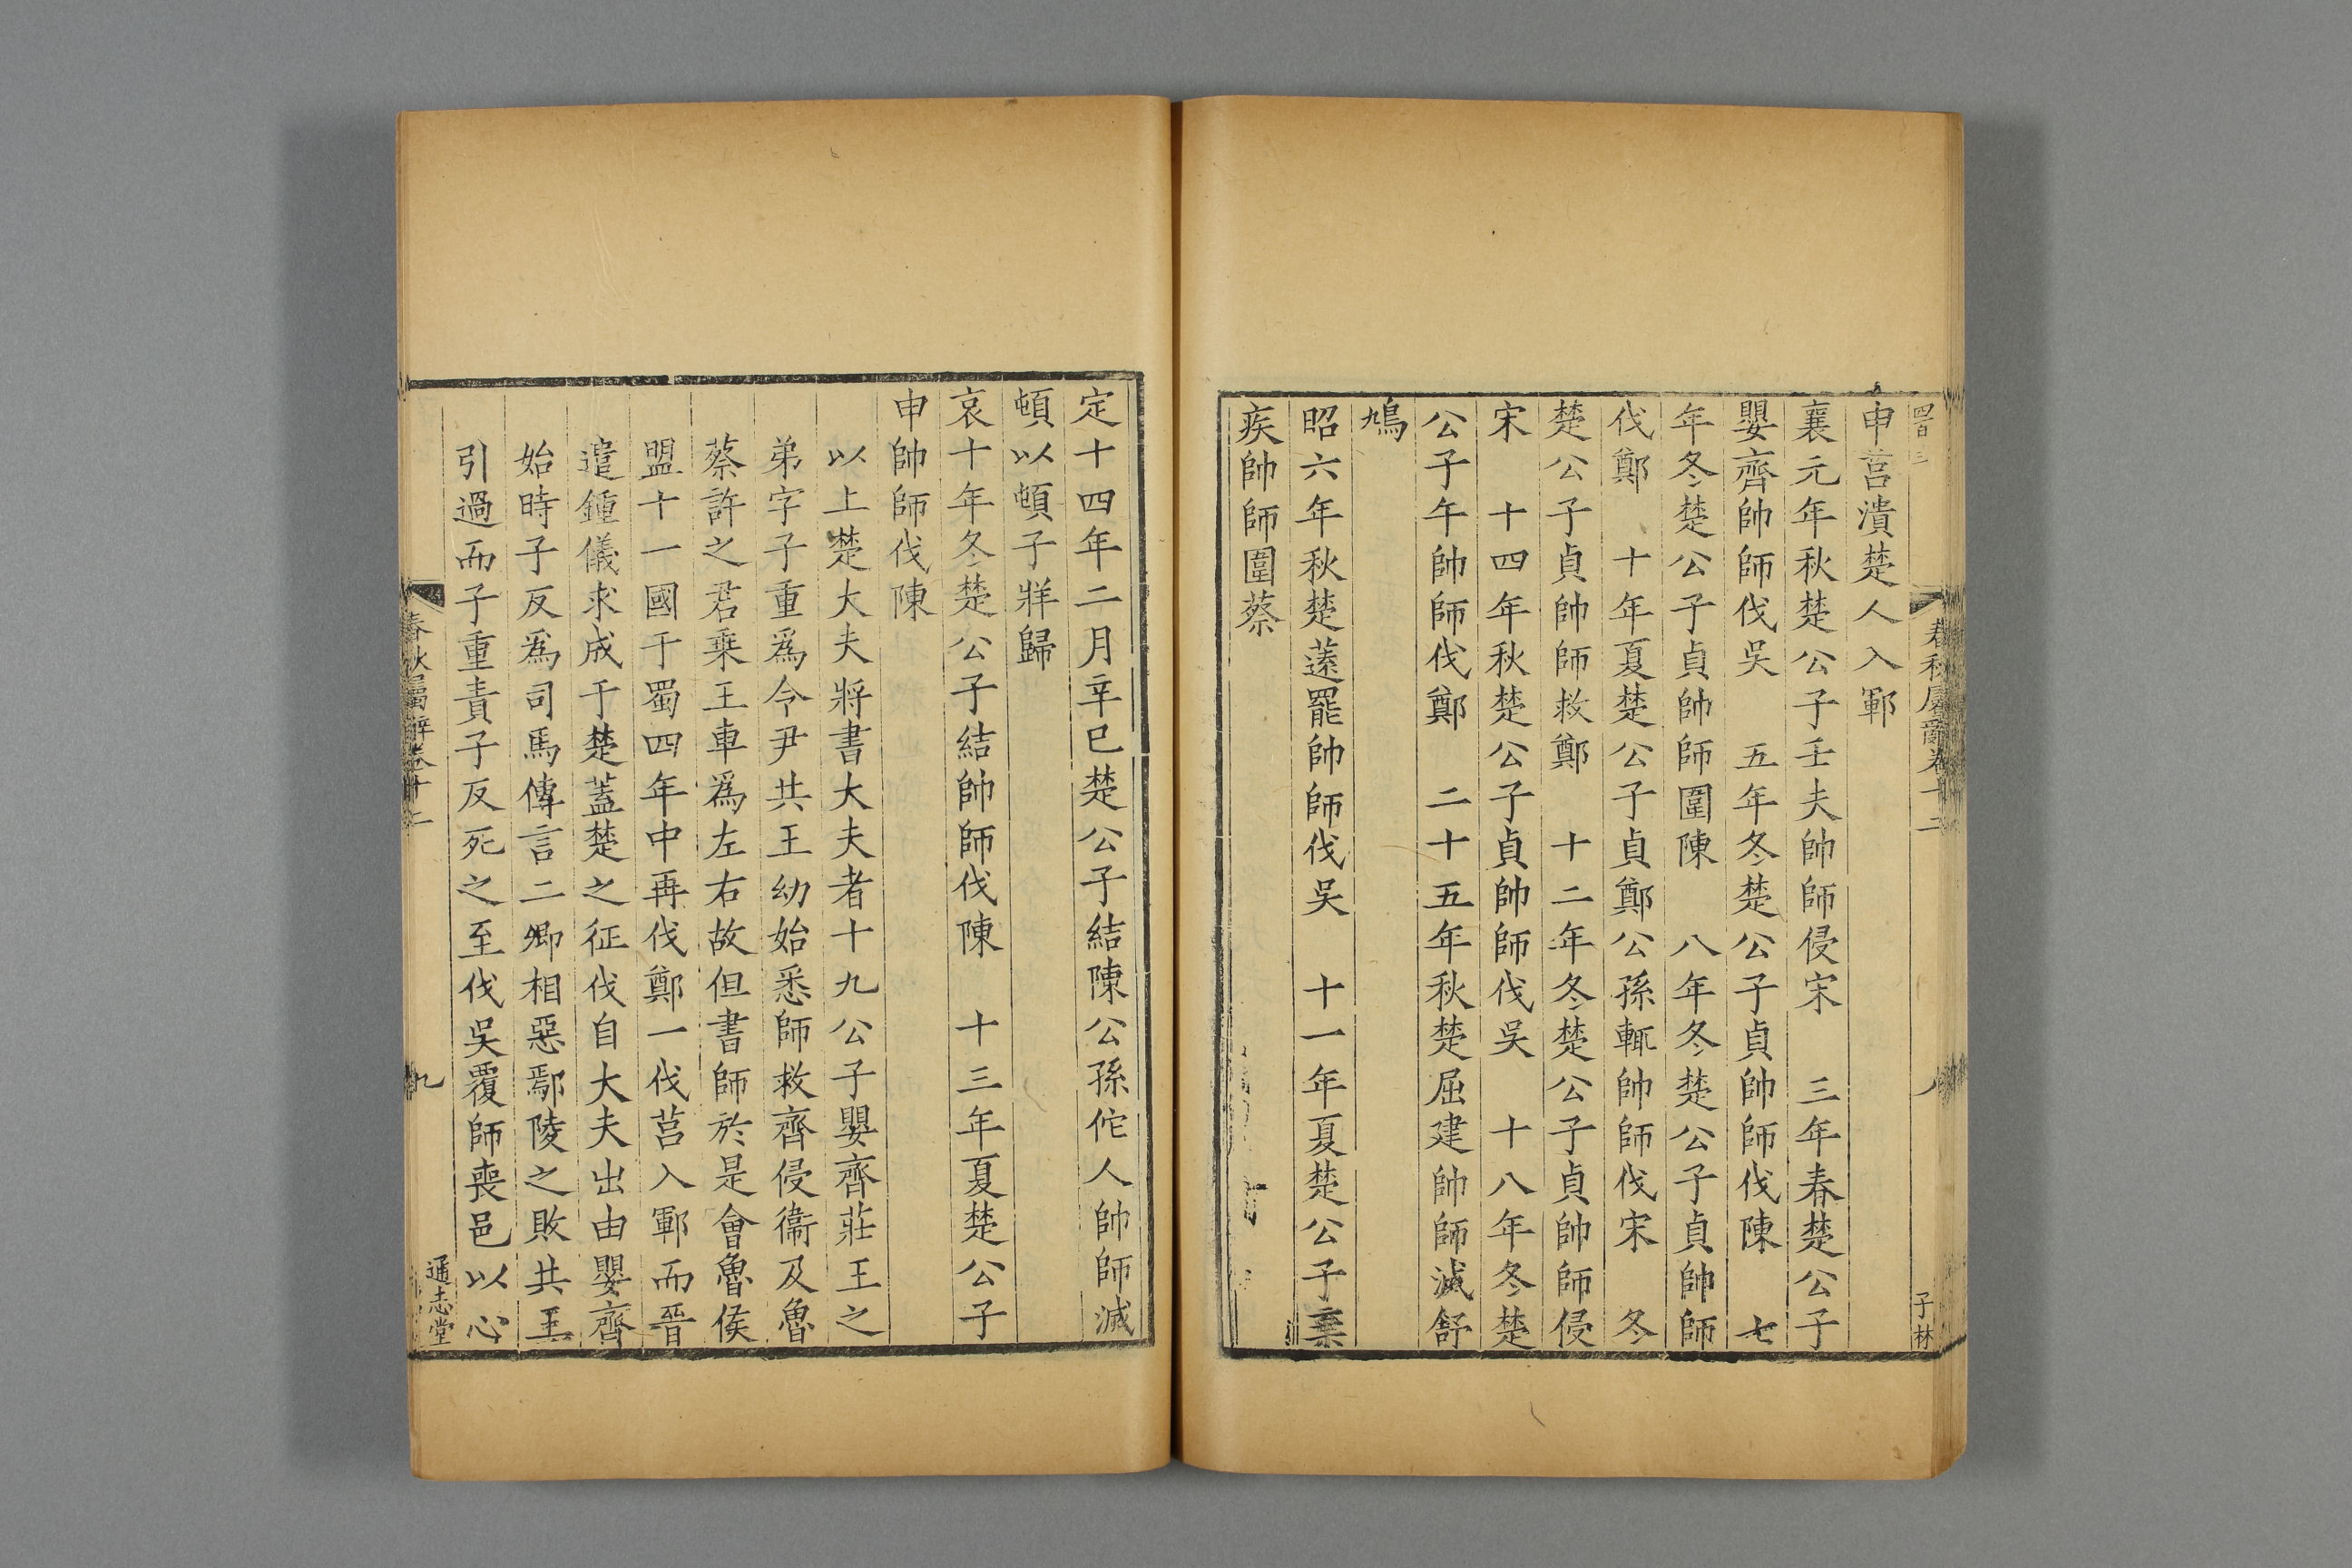 申莒潰楚人入鄆
襄元年秋楚公子壬夫帥師侵宋　三年春楚公子
嬰齊帥師伐吳　五年冬楚公子貞帥師伐陳　七
年冬楚公子貞帥師圍陳　八年冬楚公子貞帥師
伐鄭　十年夏楚公子貞鄭公孫輒帥師伐宋　冬
楚公子貞帥師救鄭　十二年冬楚公子貞帥師侵
宋　十四年秋楚公子貞帥師伐吳　十八年冬楚
公子午帥師伐鄭　二十五年秋楚屈建帥師滅舒
鳩
昭六年秋楚薳罷帥師伐吳　十一年夏楚公子棄
疾帥師圍蔡
春秋屬辭卷十二
八
子林
定十四年二月辛巳楚公子結陳公孫佗人帥師滅
頓以頓子牂歸
哀十年冬楚公子結帥師伐陳　十三年夏楚公子
申帥師伐陳
以上楚大夫將書大夫者十九公子嬰齊莊王之
弟字子重爲令尹共王幼始悉師救齊侵衞及魯
蔡許之君乗王車爲左右故但書師於是會魯侯
盟十一國于蜀四年中再伐鄭一伐莒入鄆而晉
遣鍾儀求成于楚蓋楚之征伐自大夫出由嬰齊
始時子反爲司馬傳言二卿相惡鄢陵之敗共王
引過而子重責子反死之至伐吳覆師喪邑以心
春秋屬辭卷十二
九
通志堂